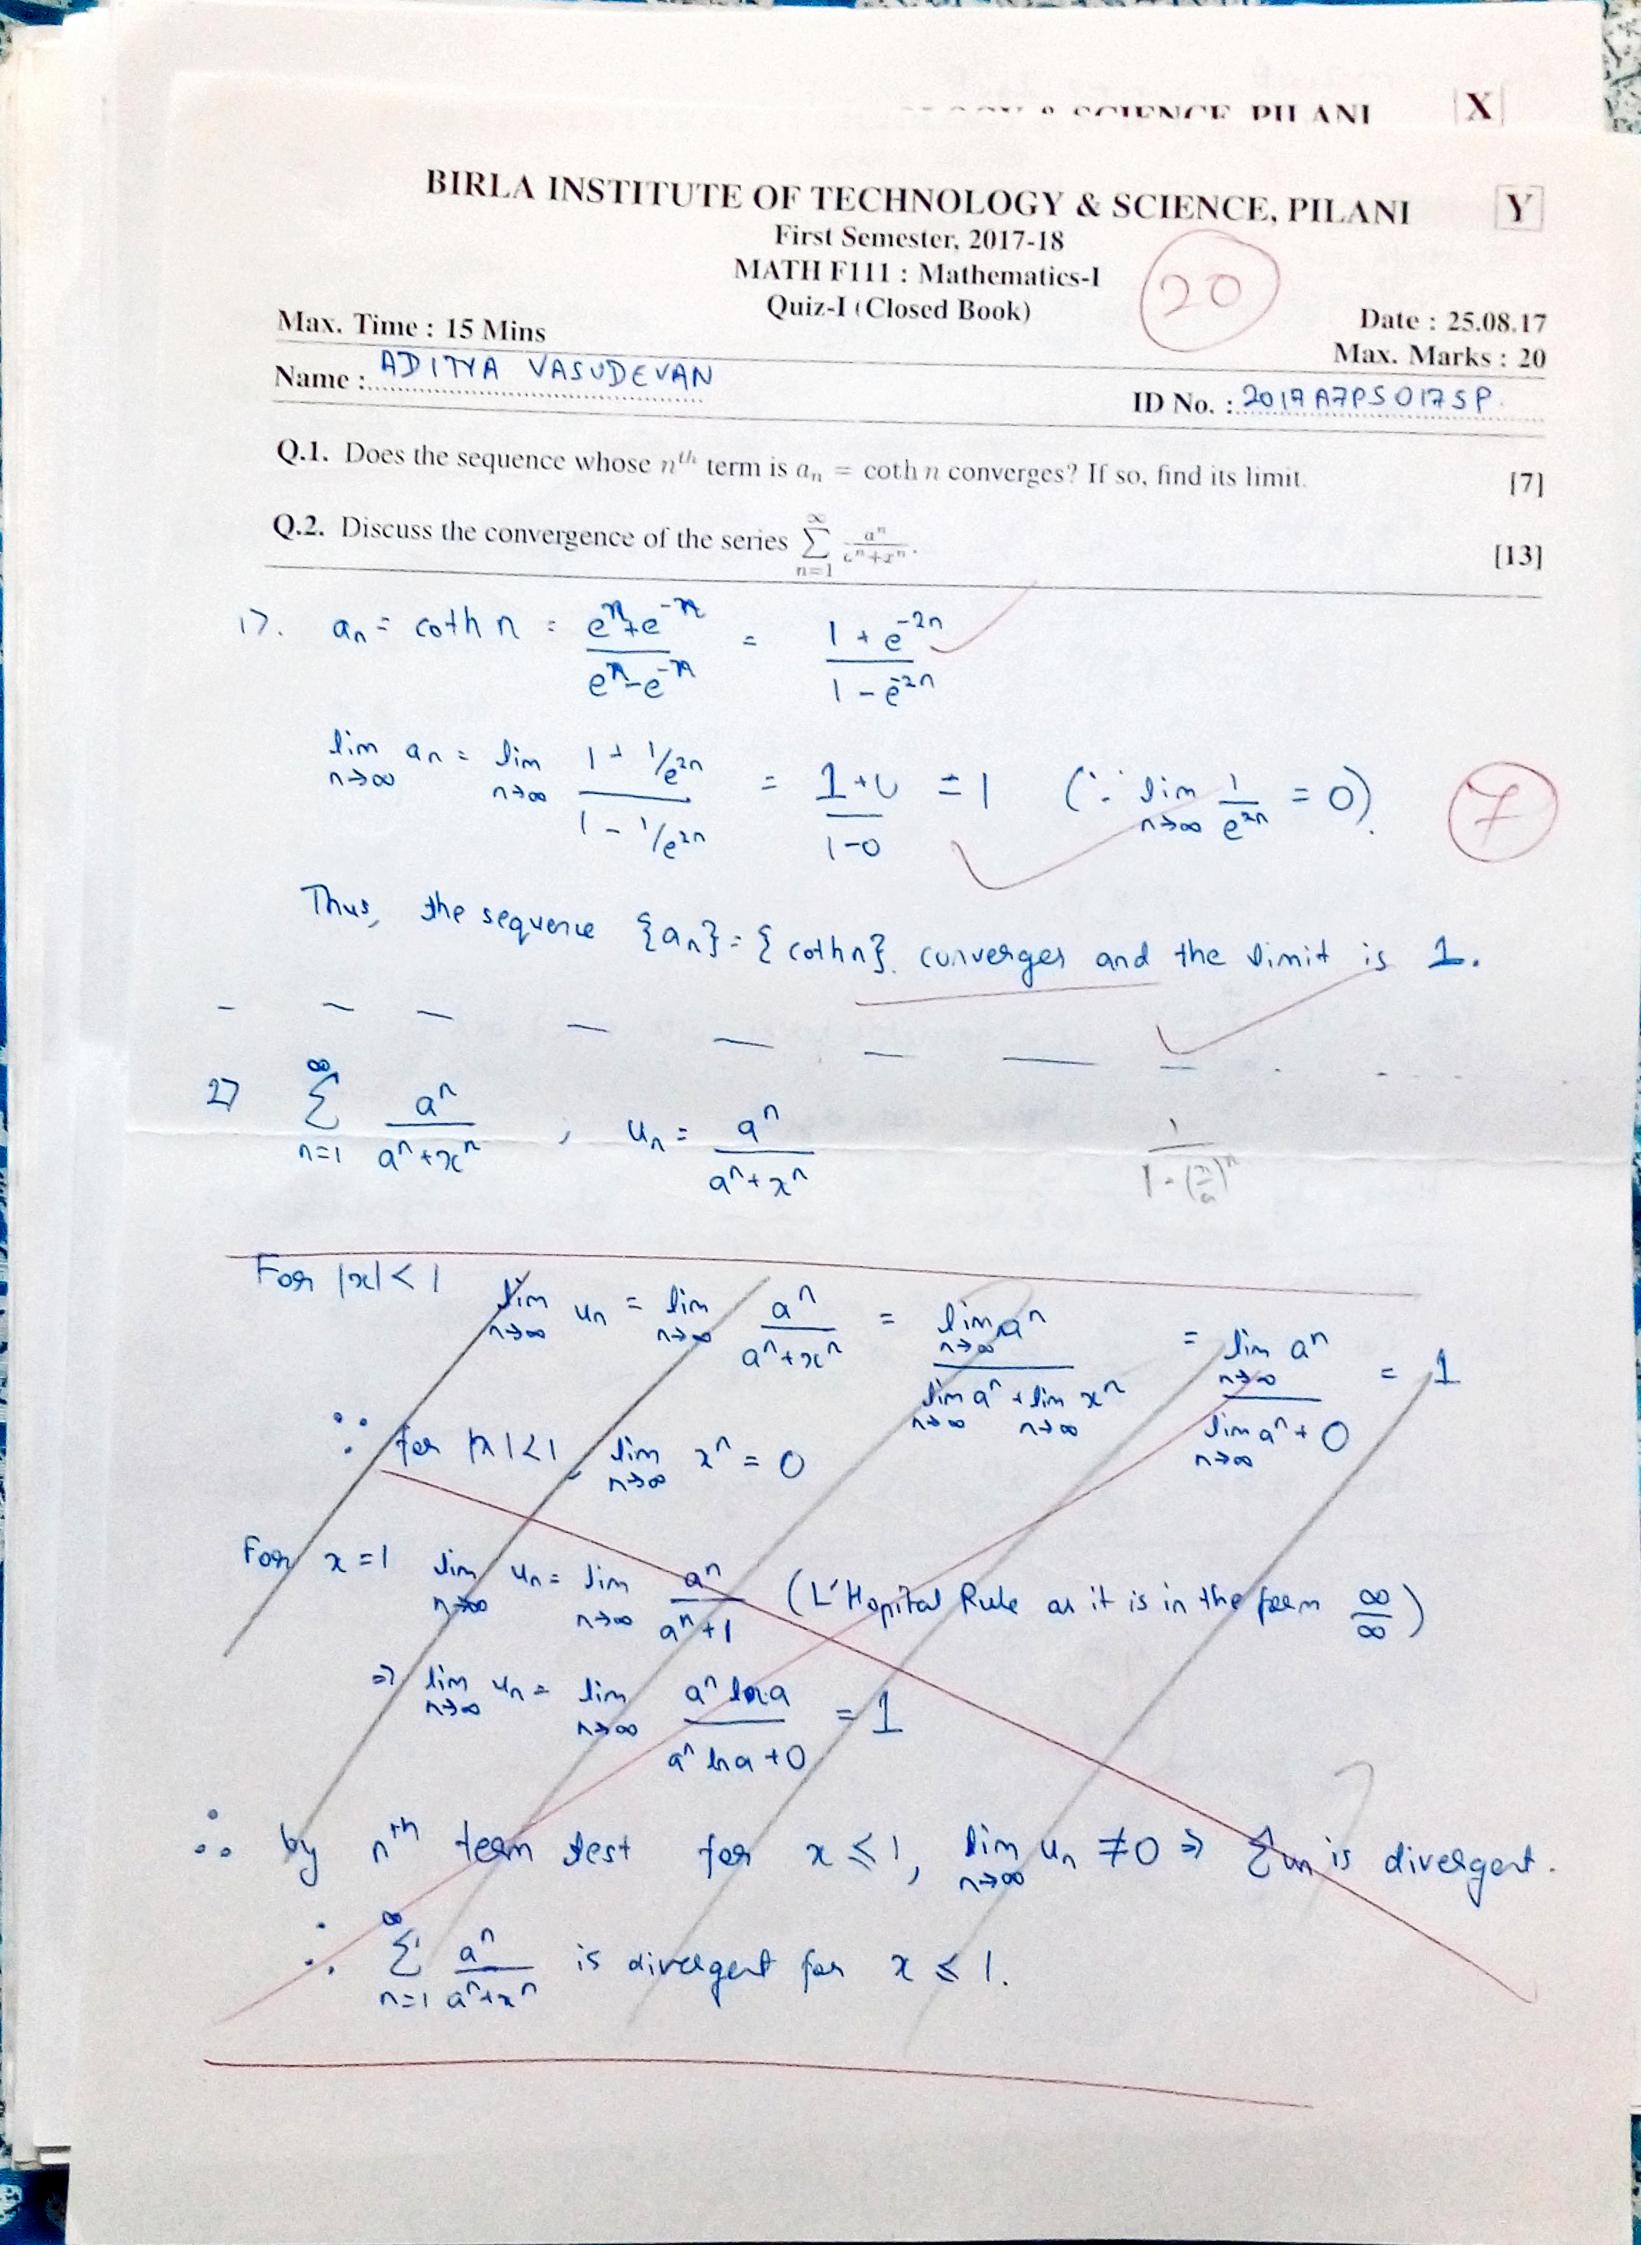 & SCIENCE, PILANI X
BIRLA INSTITUTE OF TECHNOLOGY & SCIENCE, PILANI Y
First Semester, 2017-18
MATH F111 : Mathematics-I
20
Quiz-I (Closed Book)
Max. Time : 15 Mins Date : 25.08.17
Max. Marks : 20
Name : ADITYA VASUDEVAN ID No. : 2017A7PS0175P
Q.1. Does the sequence whose nᵗʰ term is aₙ = coth n converges? If so, find its limit. [7]
Q.2. Discuss the convergence of the series ∑_{n=1}^{∞} aⁿ/(aⁿ+xⁿ). [13]
1). aₙ = coth n = (eⁿ+e⁻ⁿ)/(eⁿ-e⁻ⁿ) = (1 + e⁻²ⁿ)/(1 - e⁻²ⁿ)
lim n→∞ aₙ = lim n→∞ (1 + 1/e²ⁿ)/(1 - 1/e²ⁿ) = (1+0)/(1-0) = 1 (∵ lim n→∞ 1/e²ⁿ = 0). 7
Thus, the sequence {aₙ} = {coth n} converges and the limit is 1.
2) ∑_{n=1}^{∞} aⁿ/(aⁿ+xⁿ) , uₙ = aⁿ/(aⁿ+xⁿ)
For |x| < 1 lim n→∞ uₙ = lim n→∞ aⁿ/(aⁿ+xⁿ) = (lim n→∞ aⁿ)/(lim n→∞ aⁿ + lim n→∞ xⁿ) = (lim n→∞ aⁿ)/(lim n→∞ aⁿ + 0) = 1
∵ for |x|<1, lim n→∞ xⁿ = 0
For x = 1 lim n→∞ uₙ = lim n→∞ aⁿ/(aⁿ+1) (L'Hopital Rule as it is in the form ∞/∞)
⇒ lim n→∞ uₙ = lim n→∞ (aⁿ ln a)/(aⁿ ln a + 0) = 1
∴ by nᵗʰ term test for x ≤ 1, lim n→∞ uₙ ≠ 0 ⇒ ∑uₙ is divergent.
∴ ∑_{n=1}^{∞} aⁿ/(aⁿ+xⁿ) is divergent for x ≤ 1.